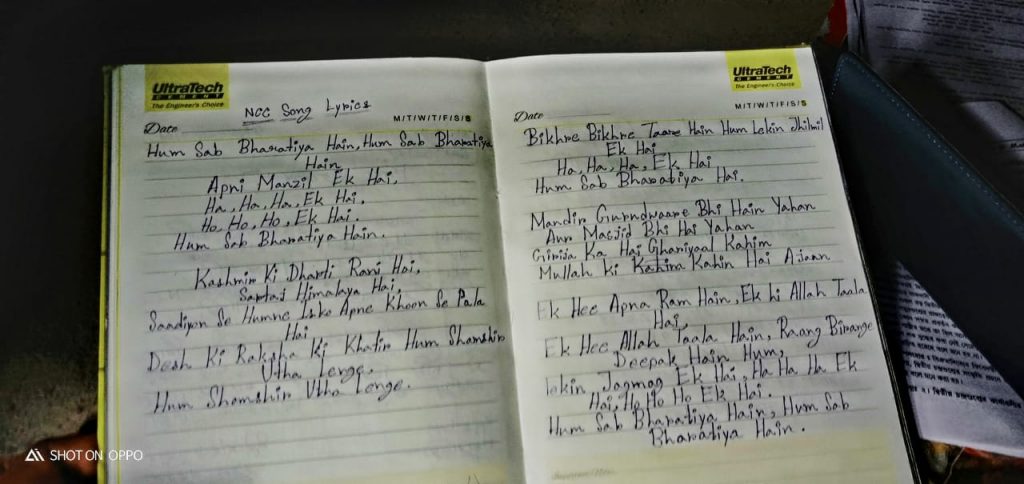 UltraTech
CEMENT
The Engineer's Choice
NCC Song Lyrics
M/T/W/T/F/S/S
Date
Hum Sab Bharatiya Hain, Hum Sab Bharatiya
Hain
Apni Manzil Ek Hai,
Ha, Ha, Ha, Ek Hai,
Ho, Ho, Ho, Ek Hai.
Hum Sab Bharatiya Hain.
Kashmir Ki Dharti Rani Hai,
Sartaj Himalya Hai,
Saadiyon Se Humne Isko Apne Khoon Se Pala
Hai
Desh Ki Raksha Ki Khatir Hum Shamshir
Utha Lenge,
Hum Shamshir Utha Lenge.
UltraTech
CEMENT
The Engineer's Choice
M/T/W/T/F/S/S
Date
Bikhre Bikhre Taare Hain Hum Lekin Jhilmil
Ek Hai
Ha, Ha, Ha, Ek Hai
Hum Sab Bharatiya Hai.
Mandir Gurudwaare Bhi Hain Yahan
Aur Masjid Bhi Hai Yahan
Girija Ka Hai Ghariyaal Kahim
Mullah Ki Kahin Hai Ajaan
Ek Hee Apna Ram Hain, Ek hi Allah Taala
Hai,
Ek Hee Allah Taala Hain, Raang Birange
Deepak Hain Hum,
lekin Jagmag Ek Hai, Ha Ha Ha Ek
Hai, Ho Ho Ho Ek Hai.
Hum Sab Bharatiya Hain, Hum Sab
Bharatiya Hain.
SHOT ON OPPO